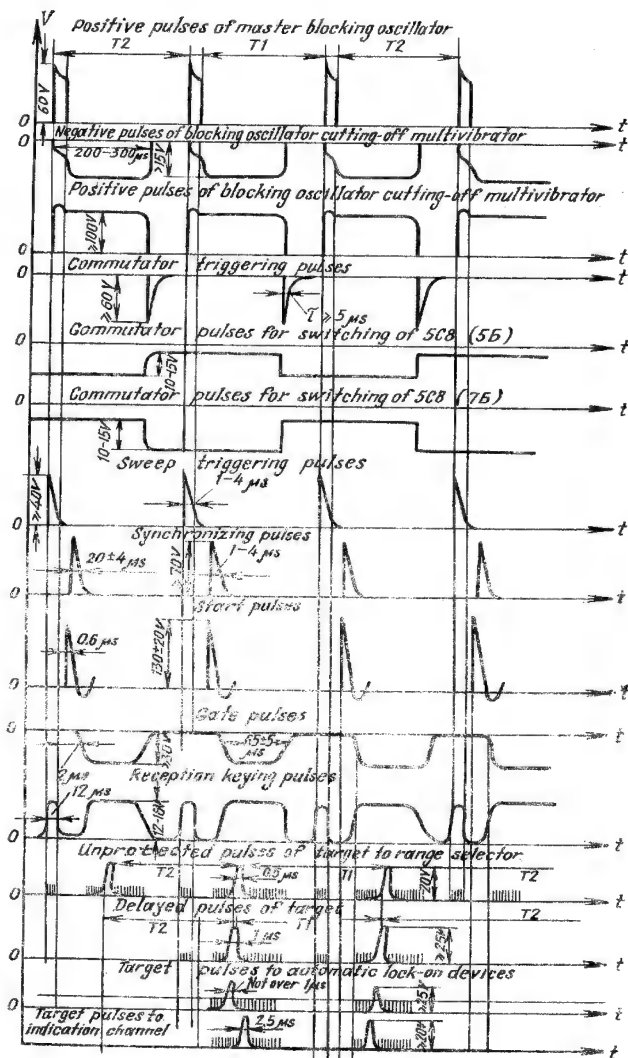 V
Positive pulses of master blocking oscillator
T2 T1 T2
60V
0 t
Negative pulses of blocking oscillator cutting-off multivibrator
0 t
200-300μs
≥15V
Positive pulses of blocking oscillator cutting-off multivibrator
≥100V
0 t
Commutator triggering pulses
0 t
≥60V
τ ≥ 5 μs
Commutator pulses for switching of 5C8 (5Б)
0 t
10-15V
Commutator pulses for switching of 5C8 (7Б)
0 t
10-15V
Sweep triggering pulses
≥40V
1-4 μs
0 t
Synchronizing pulses
20±4 μs
1-4 μs
0 t
Start pulses
0.6 μs
130±20V
0 t
Gate pulses
0 t
≥30V
65±5 μs
μs
Reception keying pulses
12 μs
12-18V
0 t
Unprotected pulses of target to range selector
T2 0.5 μs T1 T2
20V
0 t
Delayed pulses of target
T2 T1 T2
1 μs
≥25V
0 t
Target pulses to automatic lock-on devices
Not over 1μs
≥15V
0 t
Target pulses to
indication channel
2.5 μs
≥20V
0 t